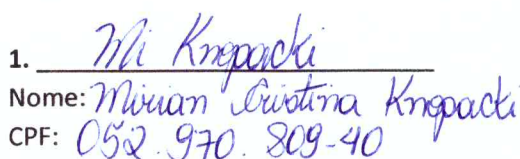 1. Mi Knopacki
Nome: Mirian Cristina Knopacki
CPF: 052.970.809-40